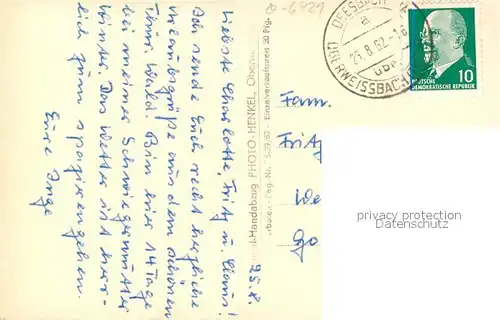 Ø-6421
25.8.
Liebste Charlotte, Fritz u. Claus!
Ich sende Euch recht herzliche
Urlaubsgrüße aus dem schönen
Thür. Wald. Bin hier 14 Tage
bei meiner Schwiegermutter
Winter. Das Wetter ist herr-
lich zum spazierengehen.
Eure Inge
Handabzug PHOTO-HENKEL, Oberw
Einzelverkaufspreis 20 Pfg.
DEESBACH
a
25.8.62.-16
über
OBERWEISSBACH
10
DEUTSCHE
DEMOKRATISCHE REPUBLIK
Fam.
Fritz
We
Go
privacy protection
Datenschutz